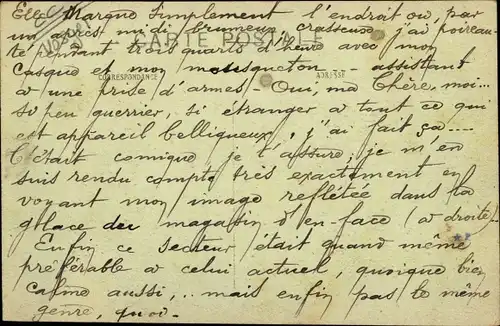 Elle Marque simplement l'endroit ou, par
un après-midi brumeux, crasseux, j'ai poireau-
CARTE POSTALE
té pendant trois quarts d'heure avec mon
casque et mon mousqueton - assistant
CORRESPONDANCE
ADRESSE
a une prise d'armes - Oui, ma Chère, moi...
si peu guerrier, si étranger a tout ce qui
est appareil belliqueux, j'ai fait ça....
C'était comique, je t'assure, je m'en
suis rendu compte très exactement en
voyant mon image reflétée dans la
glace du magasin d'en-face (a droite)..
Enfin ce secteur était quand même
préférable a celui actuel, quoique bien
calme aussi,... mais enfin pas le même
genre, quoi-